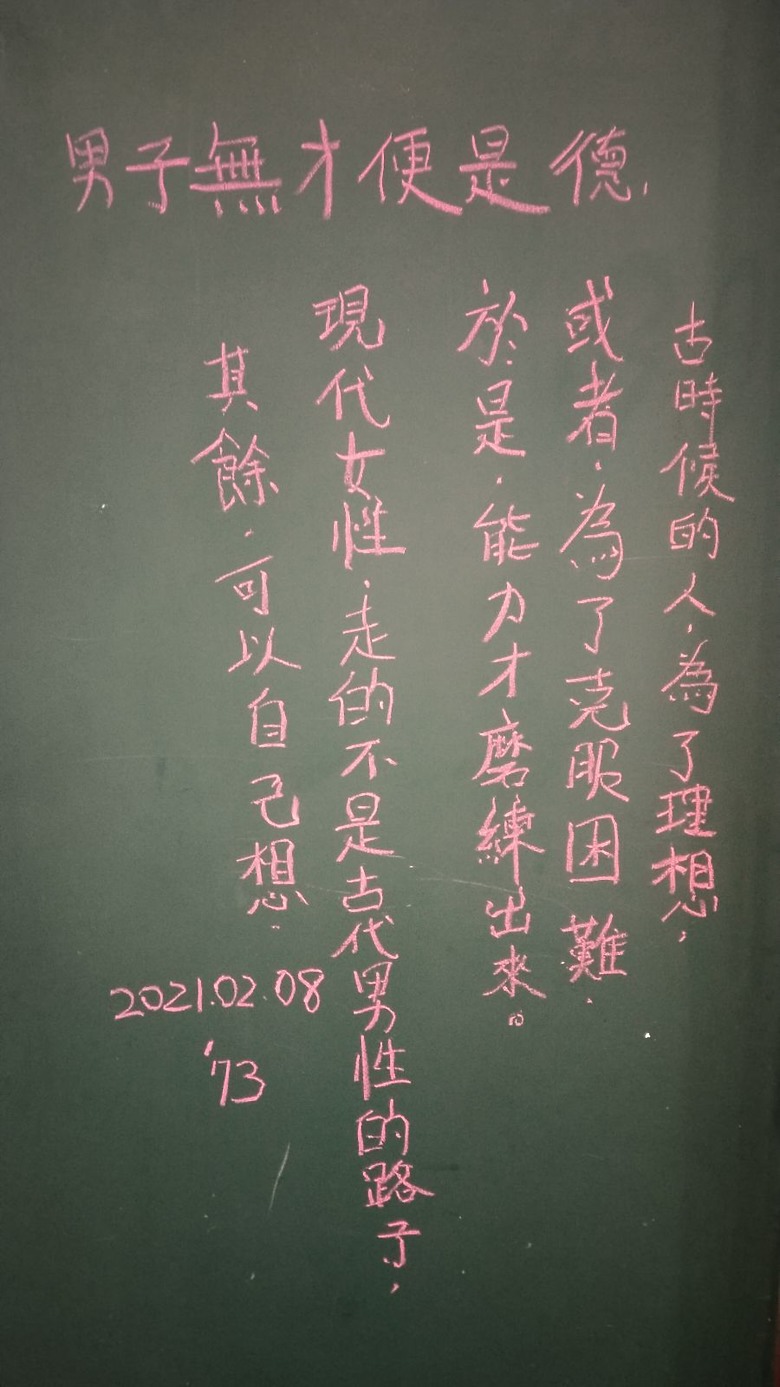 男子無才便是德.
古時候的人,為了理想,
或者,為了克服困難,
於是,能力才磨練出來。
現代女性,走的不是古代男性的路子,
其餘,可以自己想.
2021.02.08
'73